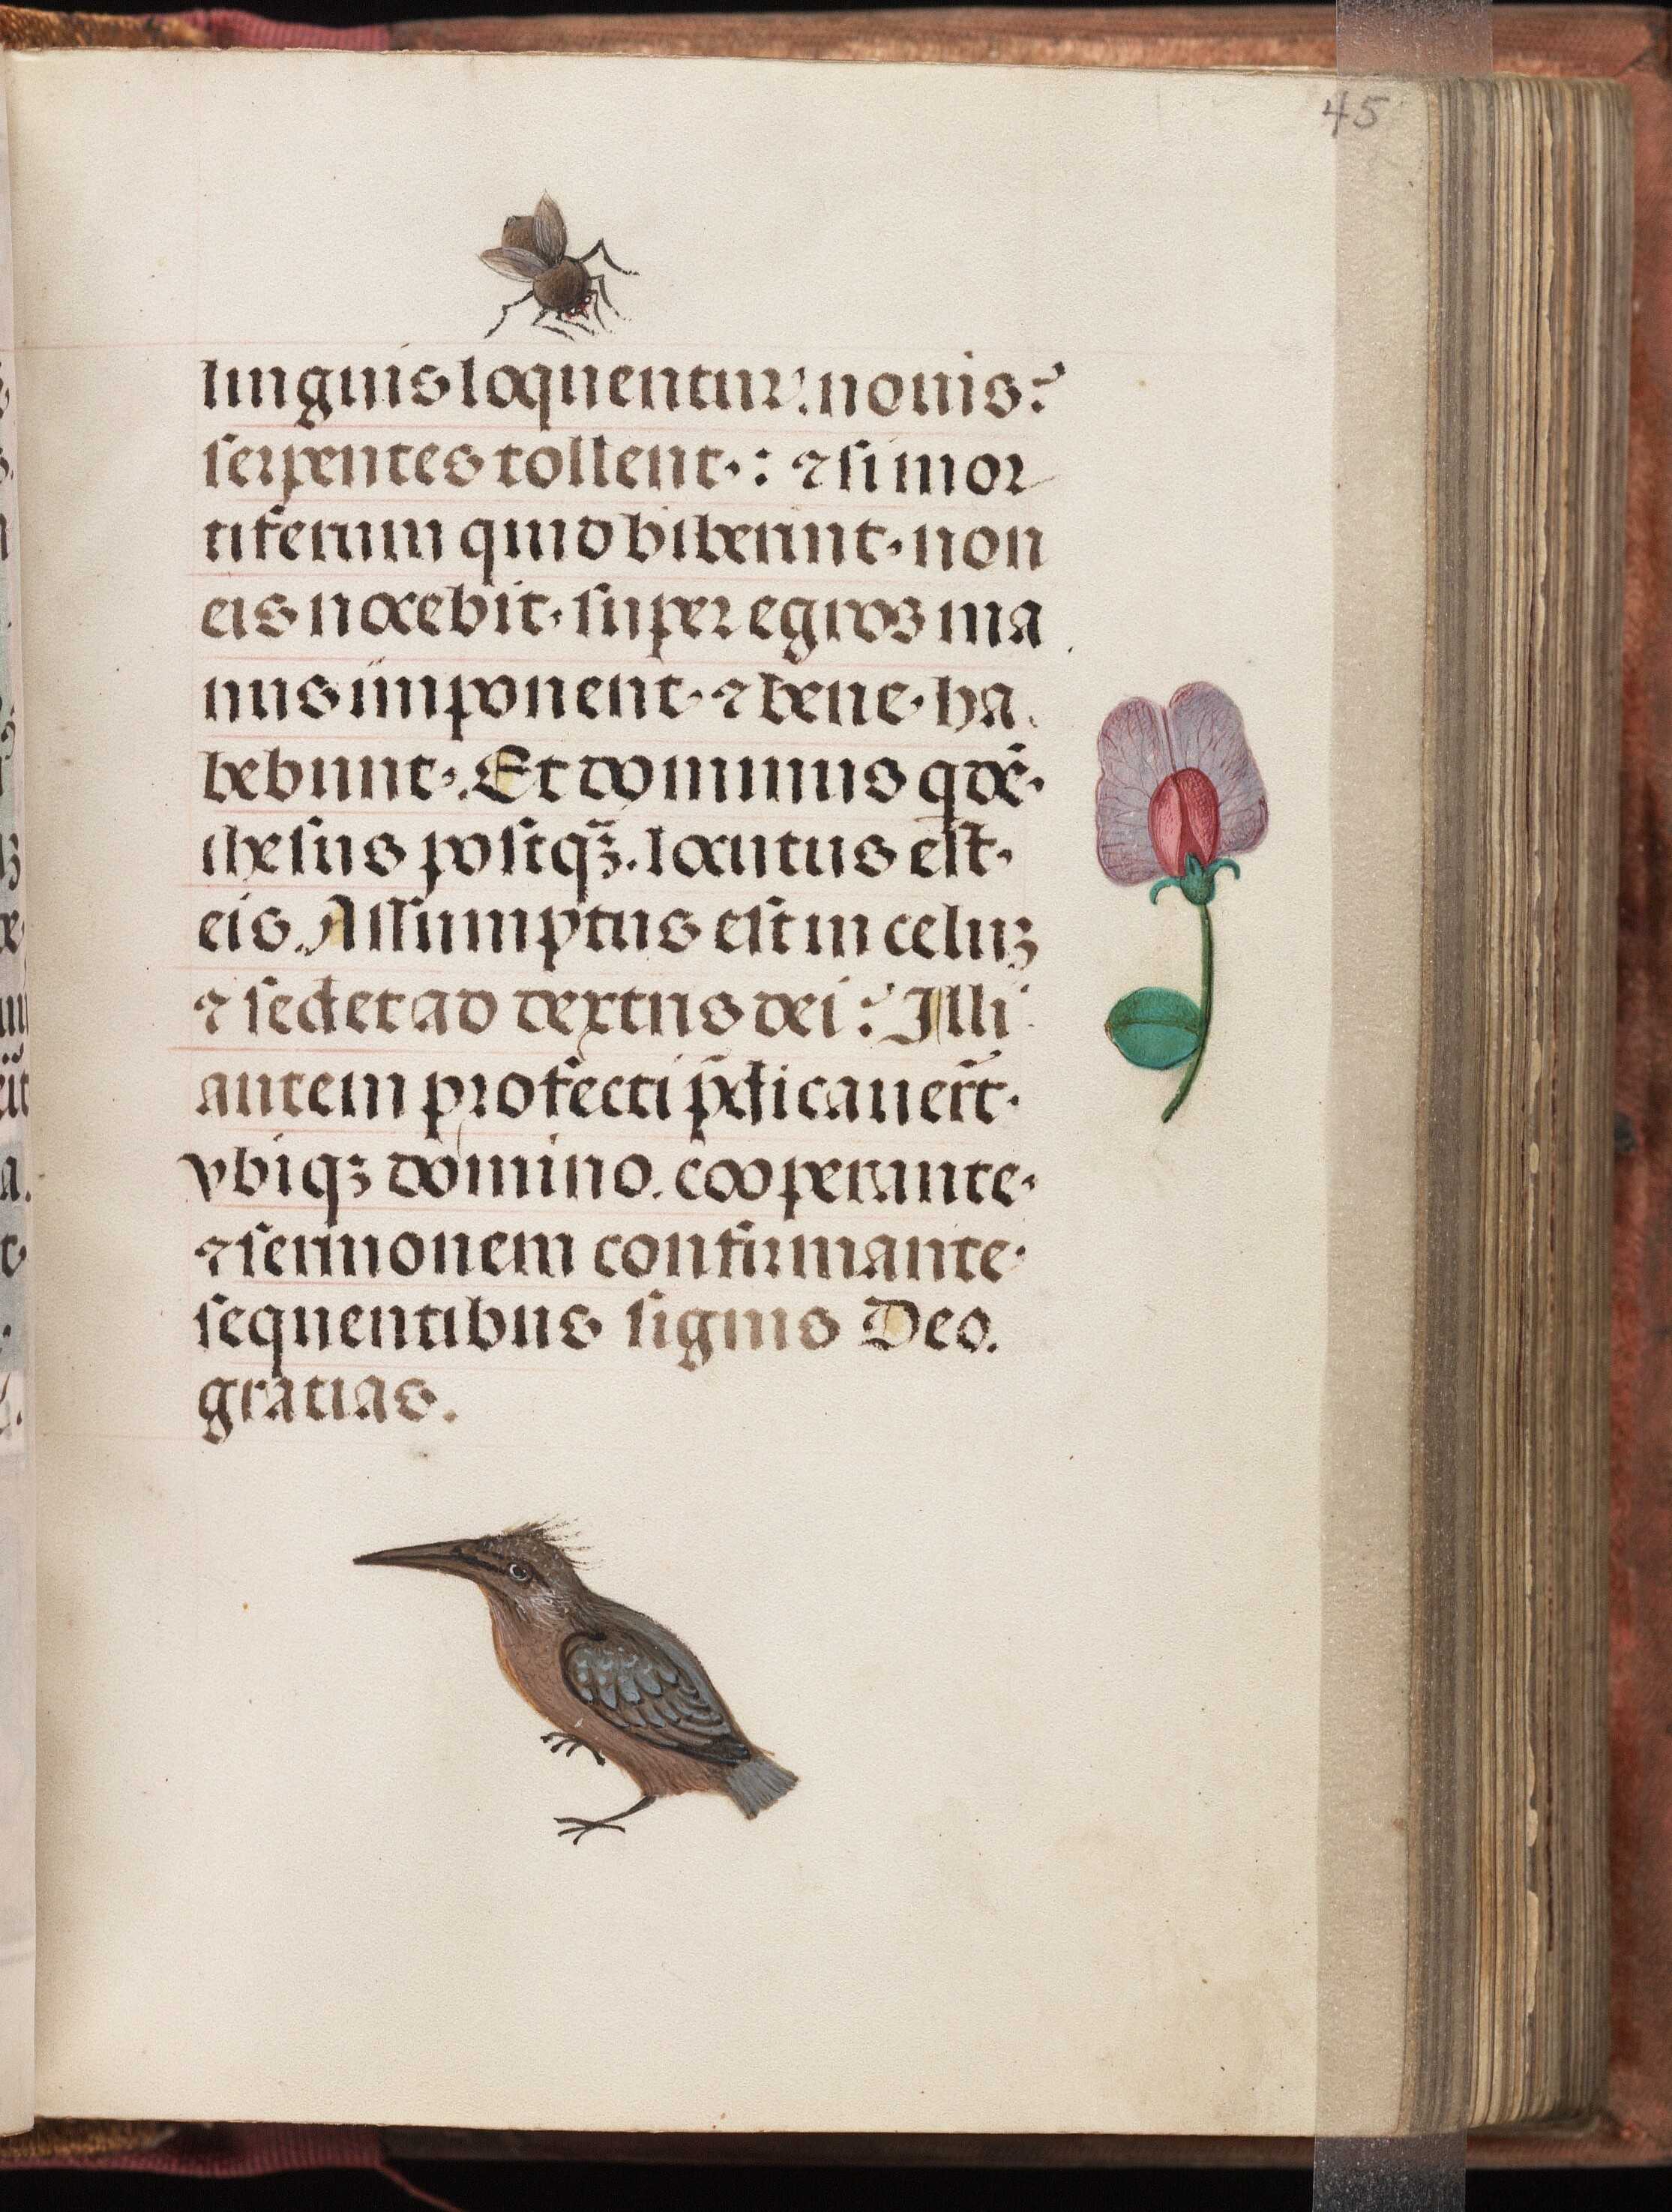 45
linguis loquentur: nouis:
serpentes tollent·: ⁊ si mor
tiferum quid biberint· non
eis nocebit· super egros ma
nus imponent· ⁊ bene· ha
bebunt·. Et dominus qdē·
ihesus postq̄ꝫ. locutus est·
eis. Assumptus est in celuꝫ
⁊ sedet ad dextris dei: Illi
autem profecti p̄dicauer̄t·
vbiqꝫ domino. cooperante·
⁊ sermonem confirmante·
sequentibus signis Deo.
gratias.